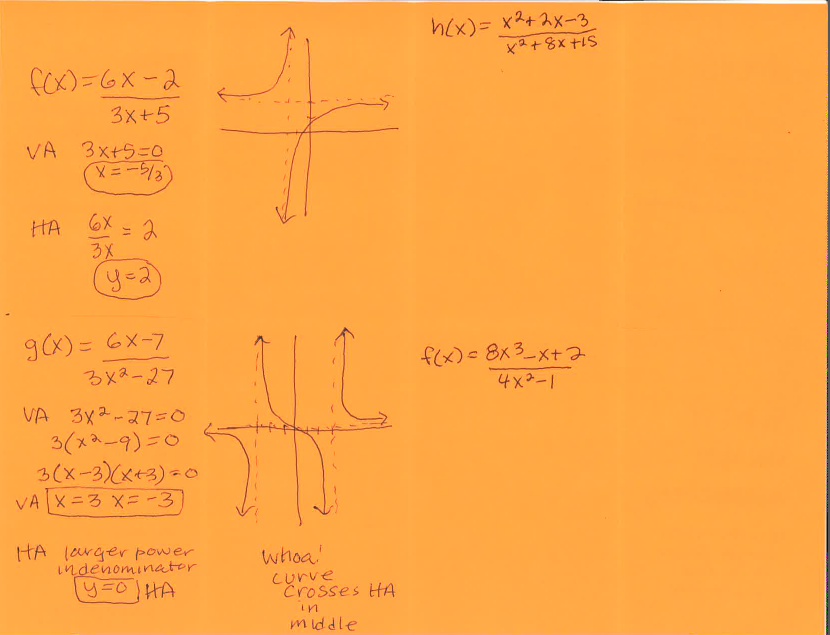 f(x) = 6x - 2
3x + 5
VA 3x+5=0
x = -5/3
HA 6x
3x
= 2
y=2
g(x) = 6x-7
3x²-27
VA 3x²-27=0
3(x²-9)=0
3(x-3)(x+3)=0
VA x=3 x=-3
HA larger power
in denominator
y=0 HA
Whoa!
curve
crosses HA
in
middle
h(x) = x²+2x-3
x²+8x+15
f(x) = 8x³-x+2
4x²-1